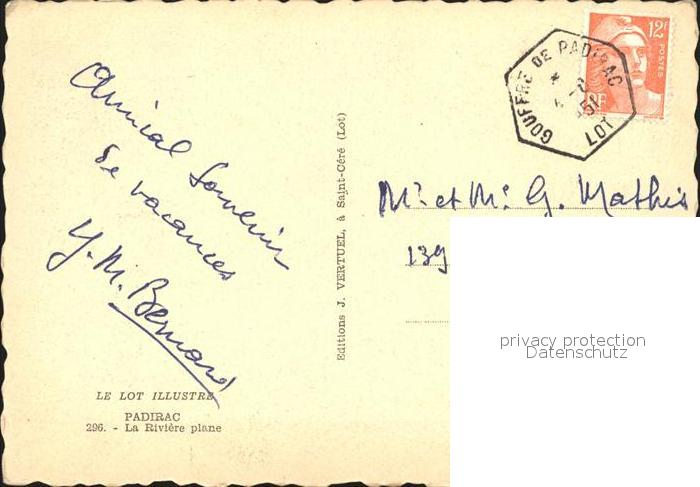 Amical Souvenir
de vacances
Y. M. Bernard
LE LOT ILLUSTRÉ
PADIRAC
296. - La Rivière plane
Editions J. VERTUEL, à Saint-Céré (Lot)
GOUFFRE DE PADIRAC
LOT
12f
POSTES
RF
Mr. et Me. G. Mathis
139
privacy protection
Datenschutz